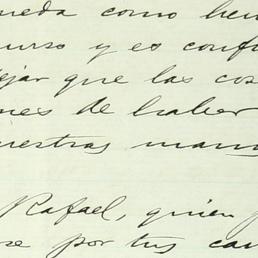 ueda como her
urso y es conf
ejar que las cos
nes de haber
uestras man
Rafael, quien
se por tus can